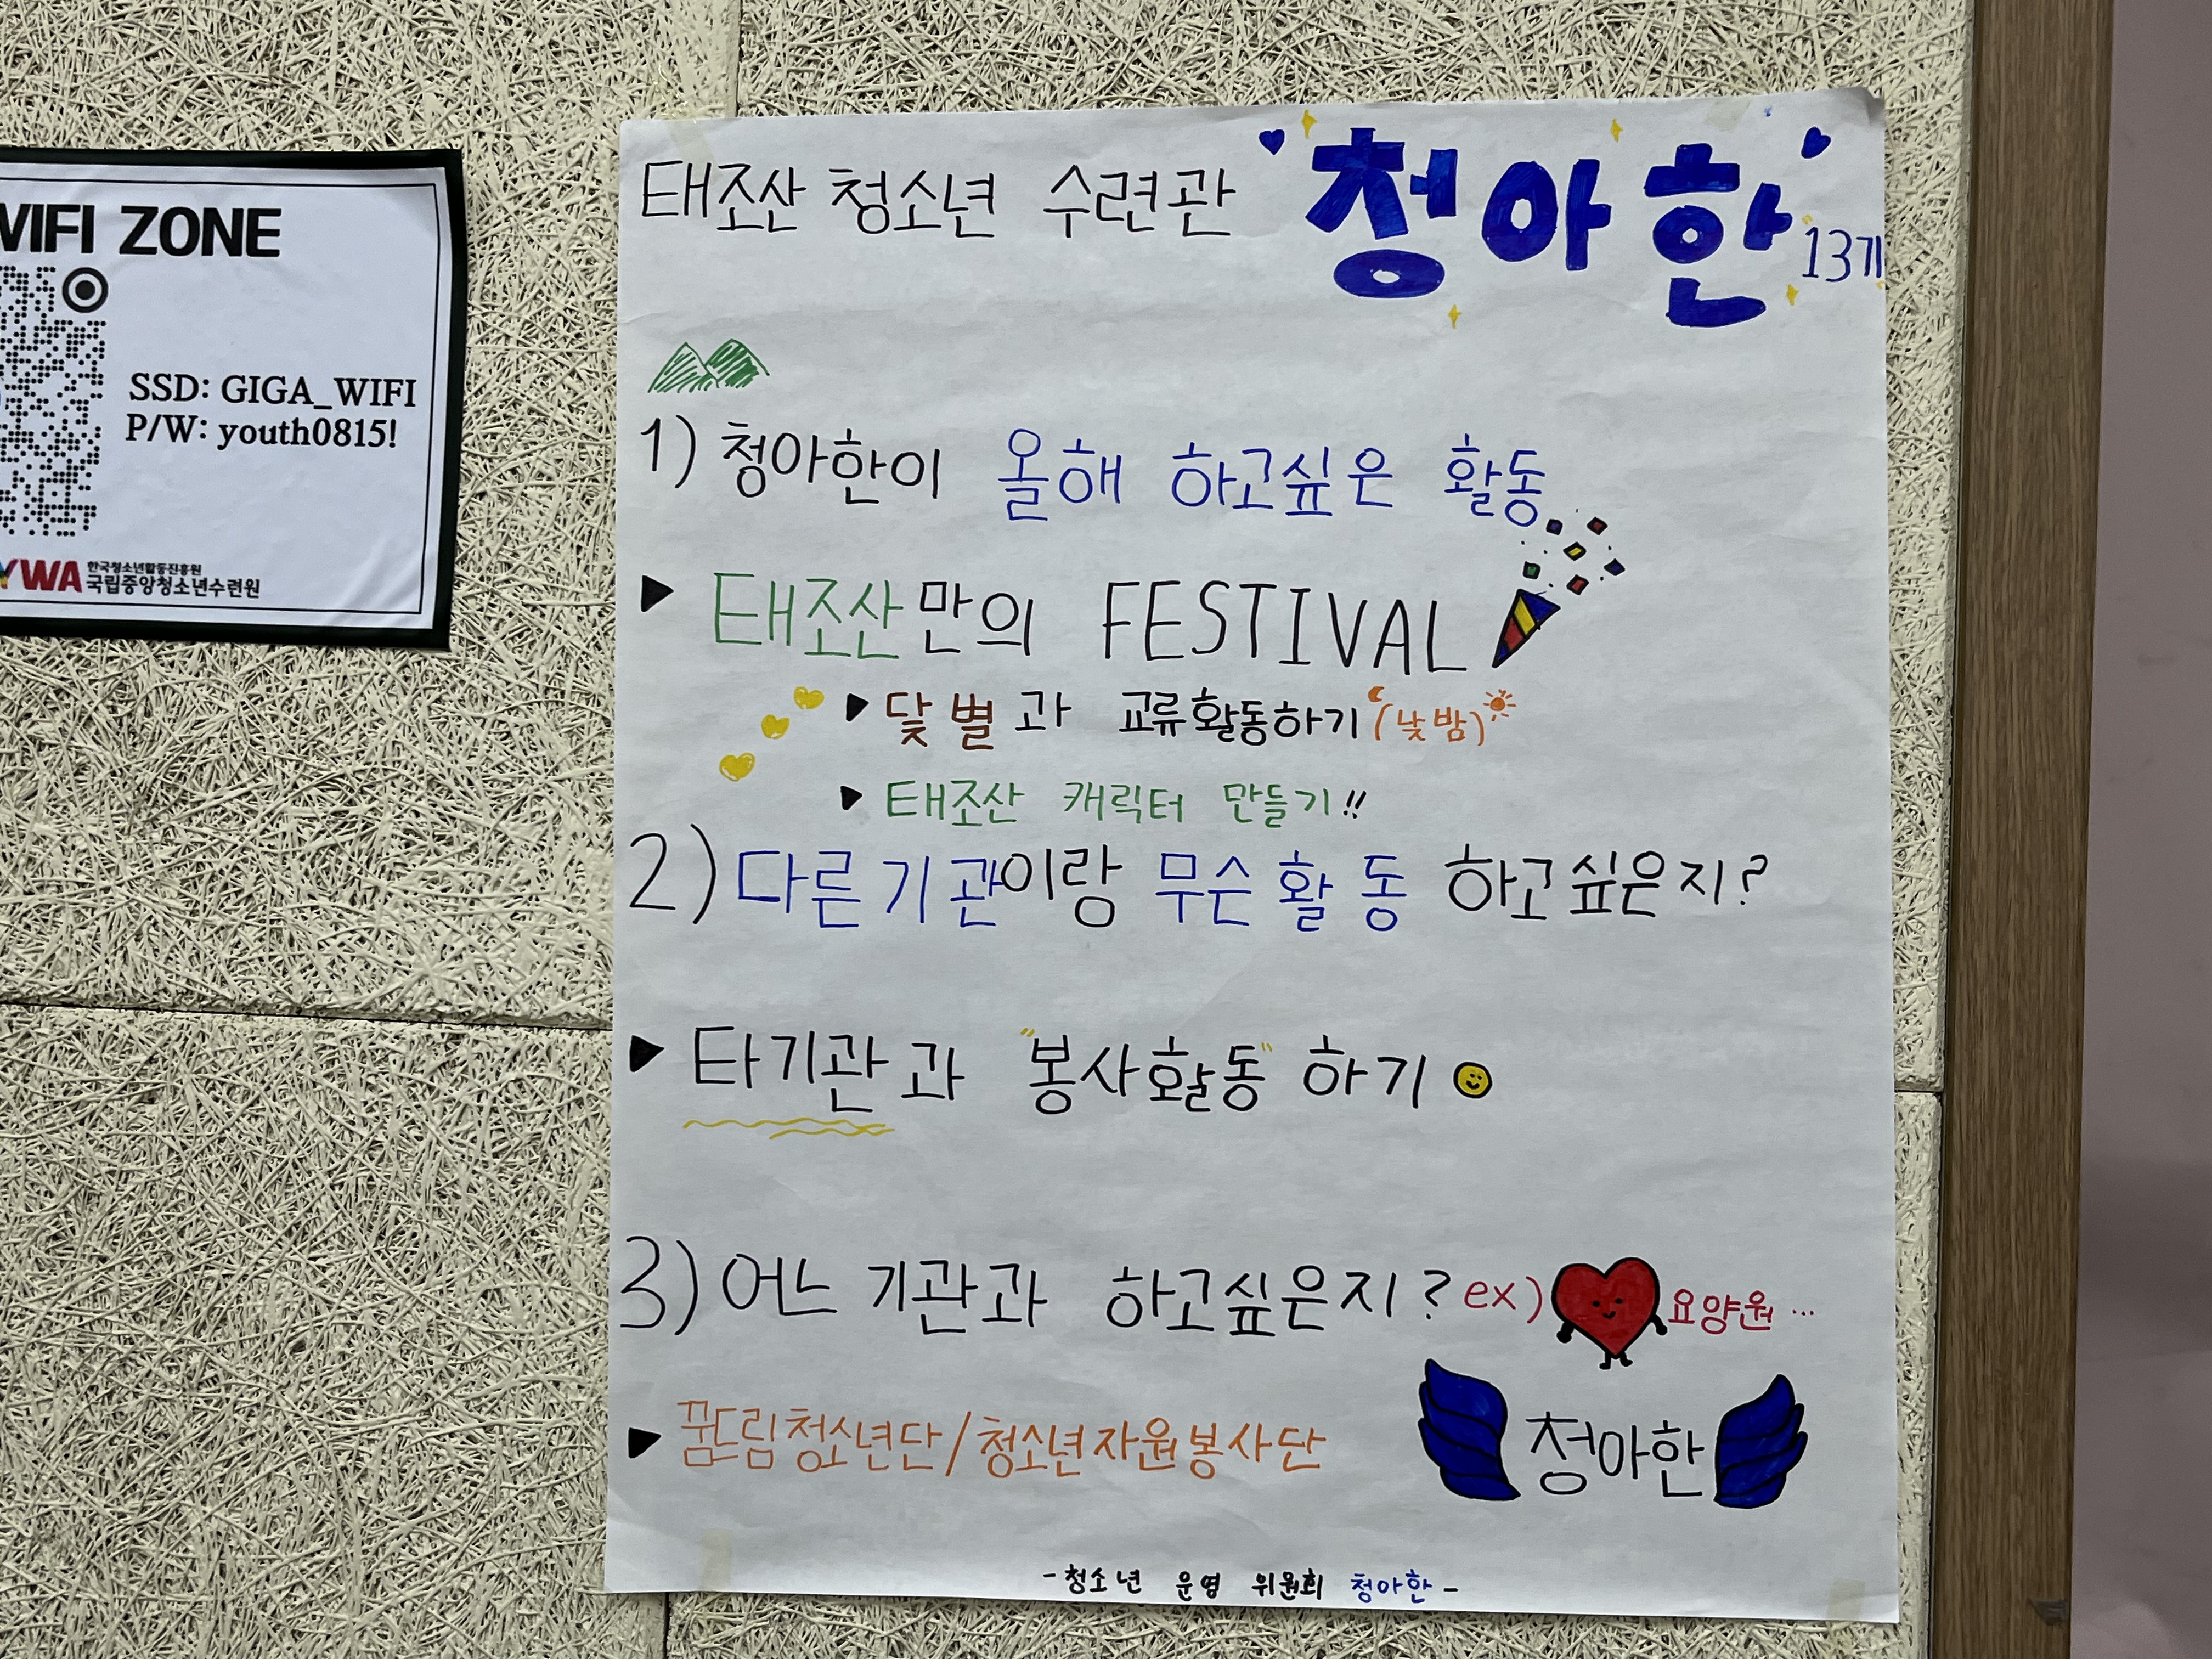 WIFI ZONE
SSD: GIGA_WIFI
P/W: youth0815!
YWA 한국청소년활동진흥원
국립중앙청소년수련원
태조산 청소년 수련관 청아한 13기
1) 청아한이 올해 하고싶은 활동
▶ 태조산만의 FESTIVAL
▶ 닻별과 교류활동하기 (낮밤)
▶ 태조산 캐릭터 만들기!!
2) 다른기관이랑 무슨활동 하고싶은지?
▶ 타기관과 "봉사활동" 하기
3) 어느 기관과 하고싶은지? ex) 요양원 ...
▶ 꿈드림청소년단/청소년자원봉사단
청아한
-청소년 운영 위원회 청아한-